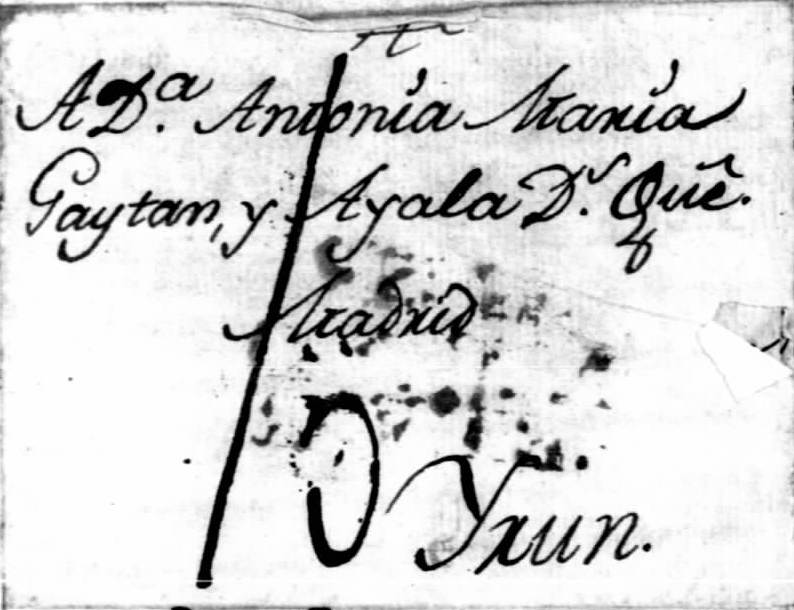 A D.ª Antonia María
Gaytan, y Ayala Dˢ. Guê.
Madrid
Yrun.